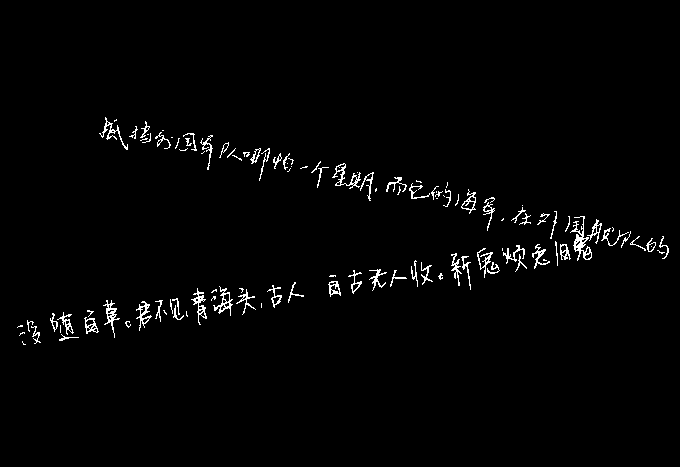 抵挡外国军队哪怕一个星期,而它的海军,在外国舰队的
没随百草。君不见,青海头,古人 自古无人收。新鬼烦冤旧鬼